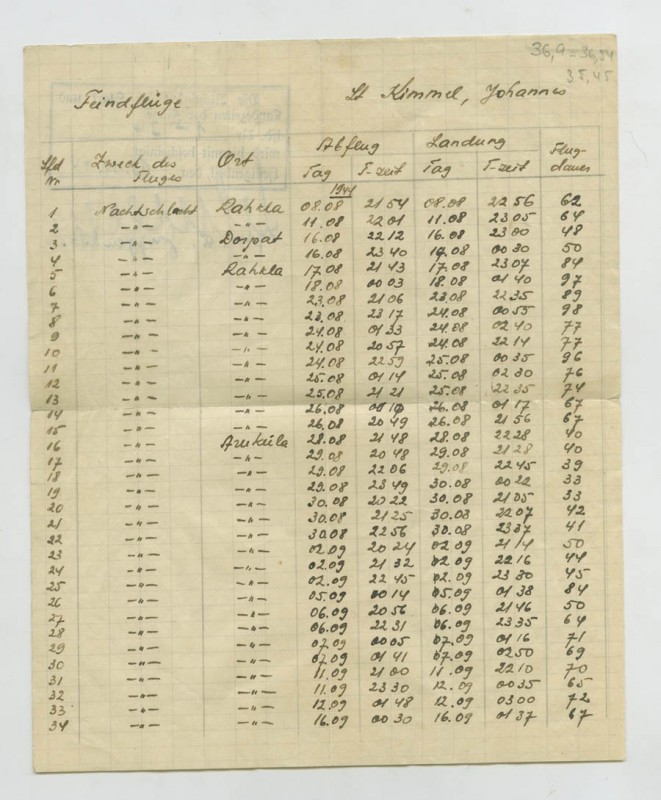 36,9 = 36,54
35,45
Feindflüge Lt Kimmel, Johannes
Abflug Landung
Lfd Nr. Zweck des Fluges Ort Tag T-zeit Tag T-zeit Flug-dauer
1944
1 Nachtschlacht Rahkla 08.08 21 54 08.08 22 56 62
2 –"– 11.08 22 01 11.08 23 05 64
3 –"– Dorpat 16.08 22 12 16.08 23 00 48
4 –"– –"– 16.08 23 40 17.08 00 30 50
5 –"– Rahkla 17.08 21 43 17.08 23 07 84
6 –"– –"– 18.08 00 03 18.08 01 40 97
7 –"– –"– 23.08 21 06 23.08 22 35 89
8 –"– –"– 23.08 23 17 24.08 00 55 98
9 –"– –"– 24.08 01 33 24.08 02 40 77
10 –"– –"– 24.08 20 57 24.08 22 14 77
11 –"– –"– 24.08 22 59 25.08 00 35 96
12 –"– –"– 25.08 01 14 25.08 02 30 76
13 –"– –"– 25.08 21 21 25.08 22 35 74
14 –"– –"– 26.08 00 10 26.08 01 17 67
15 –"– –"– 26.08 20 49 26.08 21 56 67
16 –"– Aruküla 28.08 21 48 28.08 22 28 40
17 –"– –"– 29.08 20 48 29.08 21 28 40
18 –"– –"– 29.08 22 06 29.08 22 45 39
19 –"– –"– 29.08 23 49 30.08 00 22 33
20 –"– –"– 30.08 20 22 30.08 21 05 33
21 –"– –"– 30.08 21 25 30.08 22 07 42
22 –"– –"– 30.08 22 56 30.08 23 37 41
23 –"– –"– 02.09 20 24 02.09 21 14 50
24 –"– –"– 02.09 21 32 02.09 22 16 44
25 –"– –"– 02.09 22 45 02.09 23 30 45
26 –"– –"– 05.09 00 14 05.09 01 38 84
27 –"– –"– 06.09 20 56 06.09 21 46 50
28 –"– –"– 06.09 22 31 06.09 23 35 64
29 –"– –"– 07.09 00 05 07.09 01 16 71
30 –"– –"– 07.09 01 41 07.09 02 50 69
31 –"– –"– 11.09 21 00 11.09 22 10 70
32 –"– –"– 11.09 23 30 12.09 00 35 65
33 –"– –"– 12.09 01 48 12.09 03 00 72
34 –"– –"– 16.09 00 30 16.09 01 37 67